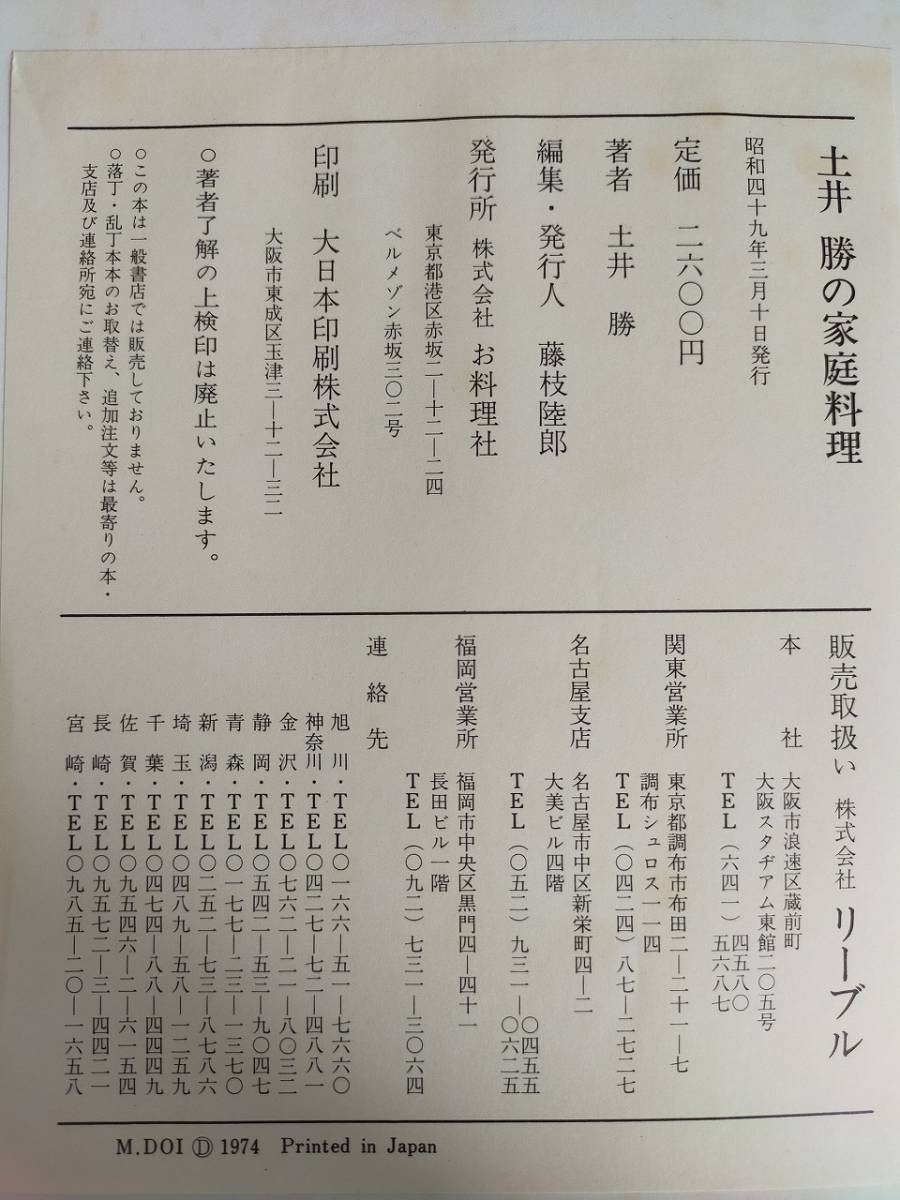 土井 勝の家庭料理
昭和四十九年三月十日発行
定価 二六〇〇円
著者 土井 勝
編集・発行人 藤枝陸郎
発行所 株式会社 お料理社
東京都港区赤坂二―十二―二四
ベルメゾン赤坂三〇二号
印刷 大日本印刷株式会社
大阪市東成区玉津三―十二―三二
○著者了解の上検印は廃止いたします。
○この本は一般書店では販売しておりません。
○落丁・乱丁本本のお取替え、追加注文等は最寄りの本・
支店及び連絡所宛にご連絡下さい。
販売取扱い 株式会社 リーブル
本社 大阪市浪速区蔵前町
大阪スタヂアム東館二〇五号
TEL(六四一)四五八〇
五六八七
関東営業所 東京都調布市布田二―二十一―七
調布シュロス一一四
TEL(〇四二四)八七―二七二七
名古屋支店 名古屋市中区新栄町四―二
大美ビル四階
TEL(〇五二)九三一―〇四五五
〇六二五
福岡営業所 福岡市中央区黒門四―四十一
長田ビル一階
TEL(〇九二)七三一―三〇六四
連絡先
旭川・TEL〇一六六―五一―七六六〇
神奈川・TEL〇四二七―七二―四八八一
金沢・TEL〇七六二―二一―八〇三二
静岡・TEL〇五四二―五三―九〇四七
青森・TEL〇一七七―二三―一三七〇
新潟・TEL〇二五二―七三―八七八六
埼玉・TEL〇四八九―五八―一二五九
千葉・TEL〇四七四―八八―四四四九
佐賀・TEL〇九五四六―二―六一五四
長崎・TEL〇九五七二―三―四四二一
宮崎・TEL〇九八五―二〇―一六五八
M.DOI Ⓓ 1974 Printed in Japan